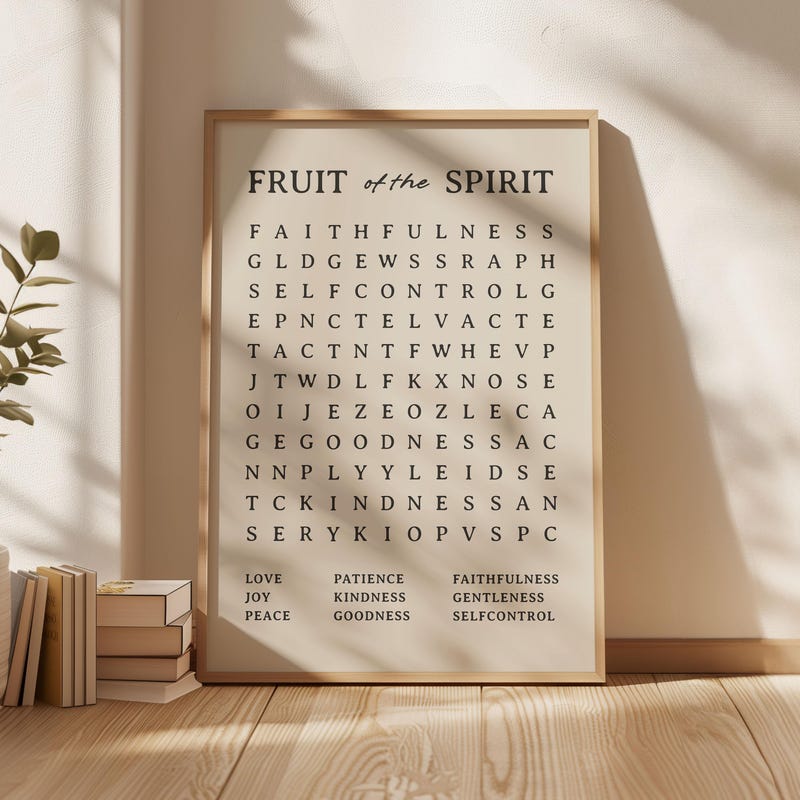 FRUIT of the SPIRIT
F A I T H F U L N E S S
G L D G E W S S R A P H
S E L F C O N T R O L G
E P N C T E L V A C T E
T A C T N T F W H E V P
J T W D L F K X N O S E
O I J E Z E O Z L E C A
G E G O O D N E S S A C
N N P L Y Y L E I D S E
T C K I N D N E S S A N
S E R Y K I O P V S P C
LOVE PATIENCE FAITHFULNESS
JOY KINDNESS GENTLENESS
PEACE GOODNESS SELFCONTROL